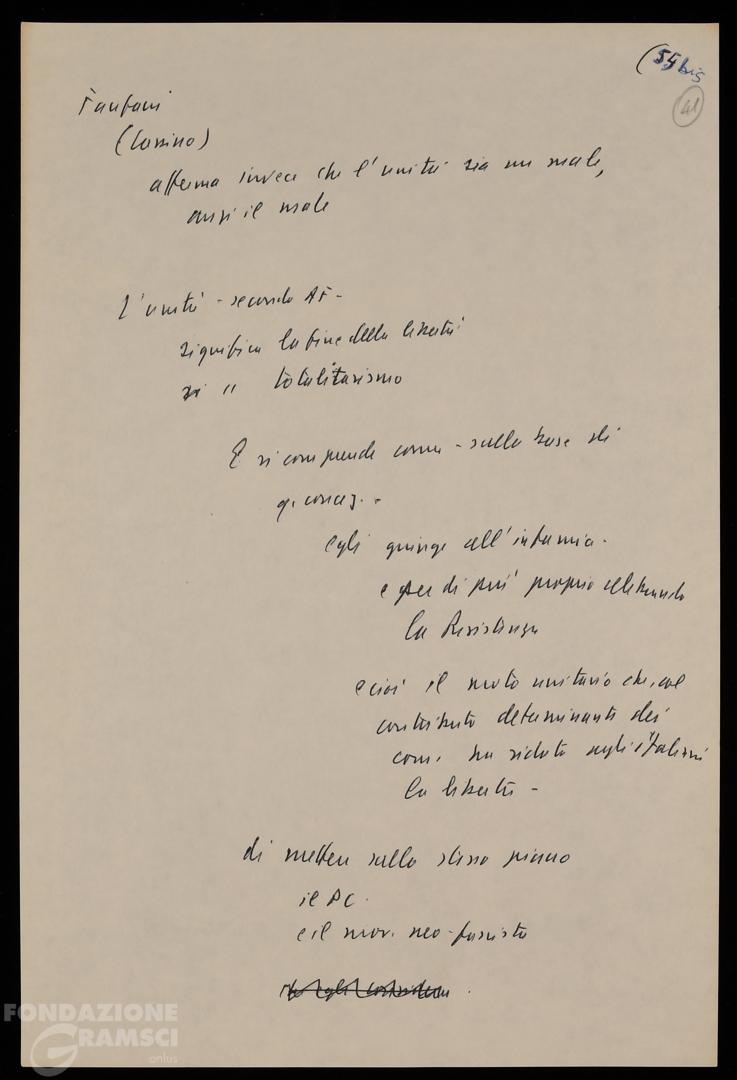 (55 bis
41
Fanfani
(Cassino)
afferma invece che l'unità sia un male,
anzi il male
L'unità - secondo AF -
significa la fine della libertà
si " totalitarismo
E si comprende come - sulla base di
q. concez. -
egli giunge all'infamia -
e per di più proprio celebrando
la Resistenza
e cioè il moto unitario che, col
contributo determinante dei
com. ha ridato agli italiani
la libertà -
di mettere sullo stesso piano
il PC.
e il mov. neo-fascista
FONDAZIONE
GRAMSCI
onlus